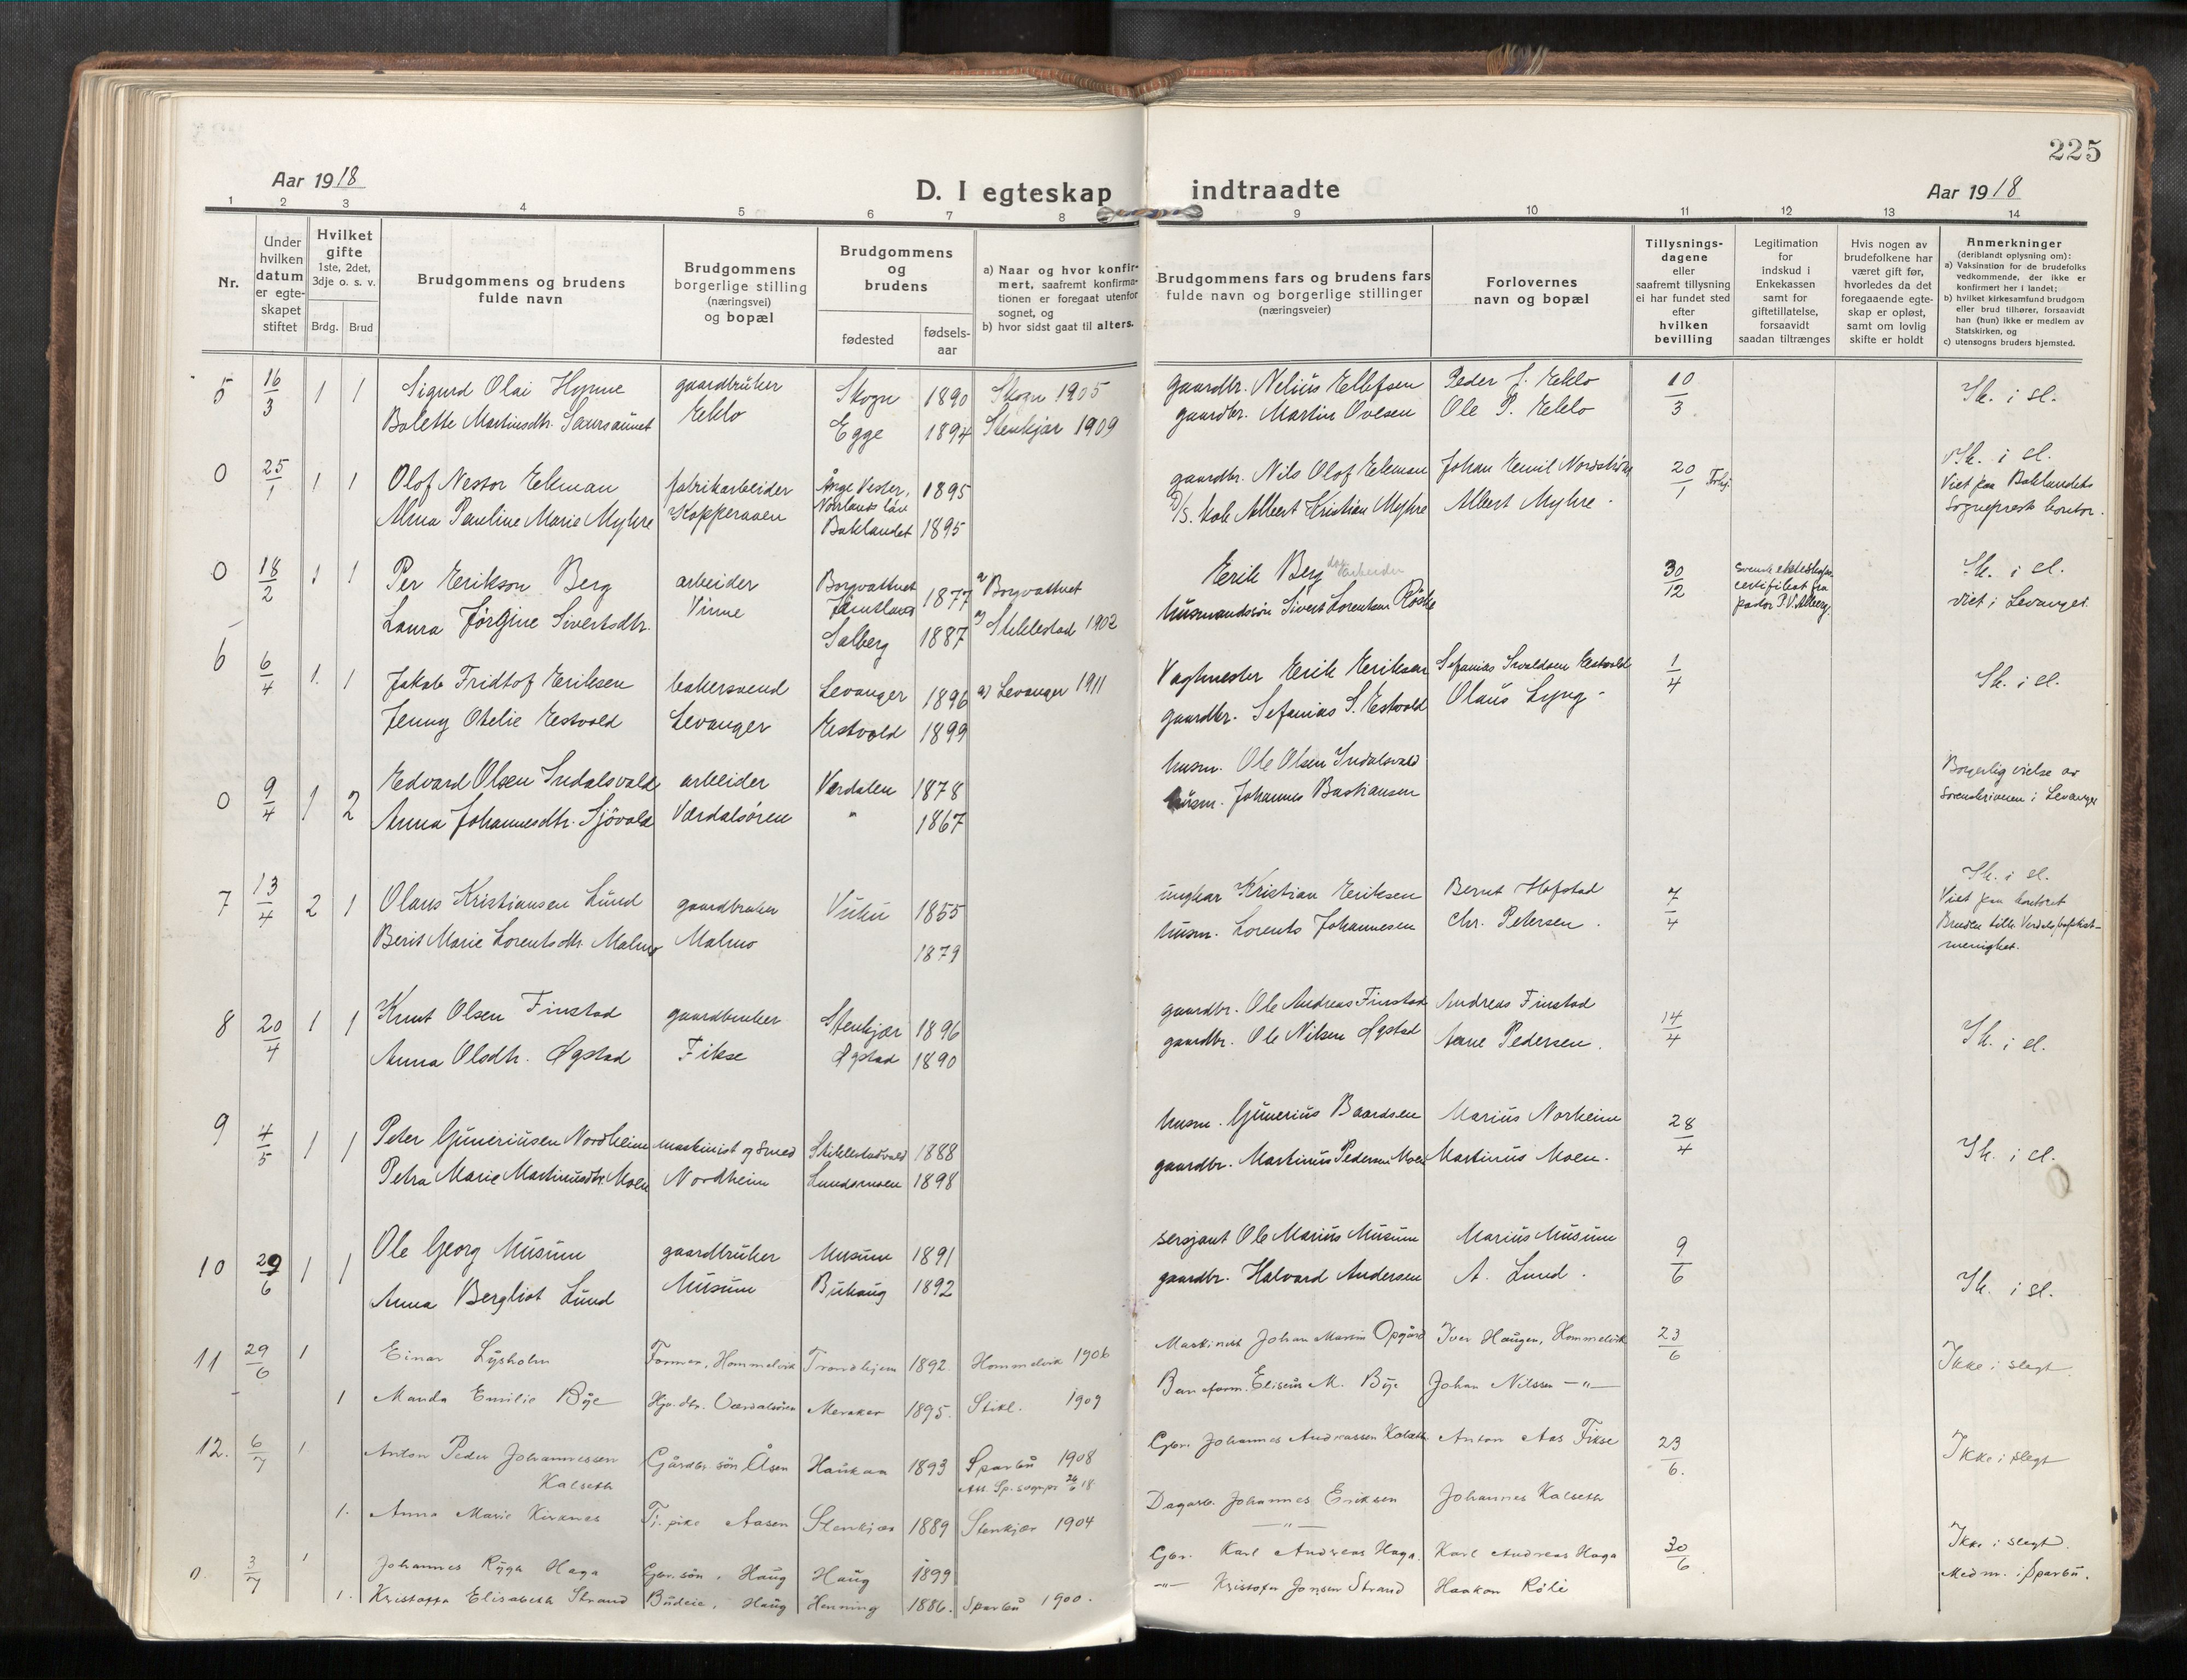 225
Aar 1918
D. I egteskap indtraadte
Aar 1918
1 2 3 4 5 6 7 8 9 10 11 12 13 14
Nr.
Under hvilken datum er egteskapet stiftet
Hvilket gifte 1ste, 2det, 3dje o. s. v.
Brdg. Brud
Brudgommens og brudens fulde navn
Brudgommens borgerlige stilling (næringsvei) og bopæl
Brudgommens og brudens
fødested
fødselsaar
a) Naar og hvor konfirmert, saafremt konfirmationen er foregaat utenfor sognet, og
b) hvor sidst gaat til alters.
Brudgommens fars og brudens fars fulde navn og borgerlige stillinger (næringsveier)
Forlovernes navn og bopæl
Tillysningsdagene eller saafremt tillysning ei har fundet sted efter hvilken bevilling
Legitimation for indskud i Enkekassen samt for giftetillatelse, forsaavidt saadan tiltrænges
Hvis nogen av brudefolkene har været gift før, hvorledes da det foregaaende egteskap er opløst, samt om lovlig skifte er holdt
Anmerkninger (deriblandt oplysning om):
a) Vaksination for de brudefolks vedkommende, der ikke er konfirmert her i landet;
b) hvilket kirkesamfund brudgom eller brud tilhører, forsaavidt han (hun) ikke er medlem av Statskirken, og
c) utensogns bruders hjemsted.
5 16/3 1 1 Sigurd Olai Hynne gaardbruker Skogn 1890 Skogn 1905 gaardbr. Nelius Ellefsen Peder J. Eklo 10/3 Ik. i sl.
Bolette Martinsdtr. Saursaunet Eklo Egge 1894 Stenkjær 1909 gaardbr. Martin Ovesen Ole P. Eklo
0 25/1 1 1 Olof Nestor Ekman fabrikarbeider Ånge Vester, Norlands län 1895 gaardbr. Nils Olof Ekman Johan Emil Nordström 20/1 Ik. i sl.
Alma Pauline Marie Myhre Kopperaaen Baklandet 1895 Albert Kristian Myhre Albert Myhre. Viet paa Baklandets Sogneprest kontor.
0 18/2 1 1 Per Erikson Berg arbeider Borgvattnet Jämtland 1877 a) Borgvattnet Erik Berg dagarbeider 30/12 Svensk ekteskaps certifikat fra pastor P. V. Ik. i sl.
Laura Jørgine Sivertsdtr. Vinne Salberg 1887 a) Stiklestad 1902 husmandssøn Sivert Lorentsen Røske Viet i Levanger.
6 6/4 1. 1 Jakob Fridtof Eriksen bakersvend Levanger 1896 a) Levanger 1911 Vagtmester Erik Eriksen Sefanias Sivaldsen Eestvold 1/4 Ik. i sl.
Jenny Otelie Eestvold Levanger Eestvold 1899 gaardbr. Sefanias S. Eestvold Olaus Lyng
0 9/4 1 2 Edvard Olsen Indalsvald arbeider Værdalen 1878 husm. Ole Olsen Indalsvald Borgerlig vielse av
Anna Johannesdtr. Sjövold Værdalsøren " 1867 husm. Johannes Bastiansen Sorenskriveren i Levanger
7 13/4 2 1 Olaus Kristiansen Lund gaardbruker Vuku 1855 ungkar Kristian Eriksen Bernt Hofstad 7/4 Ik. i sl. Viet paa kontoret
Berit Marie Lorentsdtr. Malmo Malmo 1879 husm. Lorents Johannesen Chr. Petersen. Bruden tilh. Verdals baptist-menighet.
8 20/4 1 1 Knut Olsen Finstad gaardbruker Stenkjær 1896 gaardbr. Ole Andreas Finstad Andreas Finstad 14/4 Ik. i sl.
Anna Olsdtr. Øgstad Fikse Øgstad 1890 gaardbr. Ole Nilsen Øgstad Arne Pedersen.
9 4/5 1 1 Peter Guneriusen Nordheim maskinist og smed Stiklestadvald 1888 husm. Gunerius Baardsen Marius Norheim 28/4 Ik. i sl.
Petra Marie Martinusdtr. Moen Nordheim Lundsmoen 1898 gaardbr. Martinus Pedersen Moen Martinus Moen.
10 29/6 1 1 Ole Georg Musum gaardbruker Musum 1891 sersjant Ole Marius Musum Marius Musum 9/6 Ik. i sl.
Anna Bergliot Lund Musum Buhaug 1892 gaardbr. Halvard Andersen A. Lund.
11 29/6 1 Einar Lysholm Former, Hommelvik Trondhjem 1892. Hommelvik 1906 Maskinist Johan Martin Opgård Iver Haugen, Hommelvik 23/6 Ikke i slegt
1 Manda Emilie Bye Værdalsøren Meraker 1895. Stikl. 1909 Baneform. Eliseus M. Bye Johan Nilssen —"—
12. 6/7 1 Anton Peder Johannessen Kalseth Gårdbr. søn Åsen Haukaa 1893 Sparbu 1908 Gbr. Johannes Andreassen Kalseth Anton Aas Fikse 23/6. Ikke i slegt
1. Anna Marie Kirknes Tj. pike Aasen Stenkjær 1889 Stenkjær 1904 Dagarb. Johannes Eriksen —"— Johannes Kalseth
0 3/7 1 Johannes Rygh Haga Gbr. søn, Haug Haug 1899 Gbr. Karl Andreas Haga. Karl Andreas Haga 30/6 Ikke i slegt.
1. Kristoffa Elisabeth Strand Budeie, Haug Henning 1886. Sparbu 1900. —"— Kristofer Jonsen Strand Haakon Röli Med m. i Sparbu.